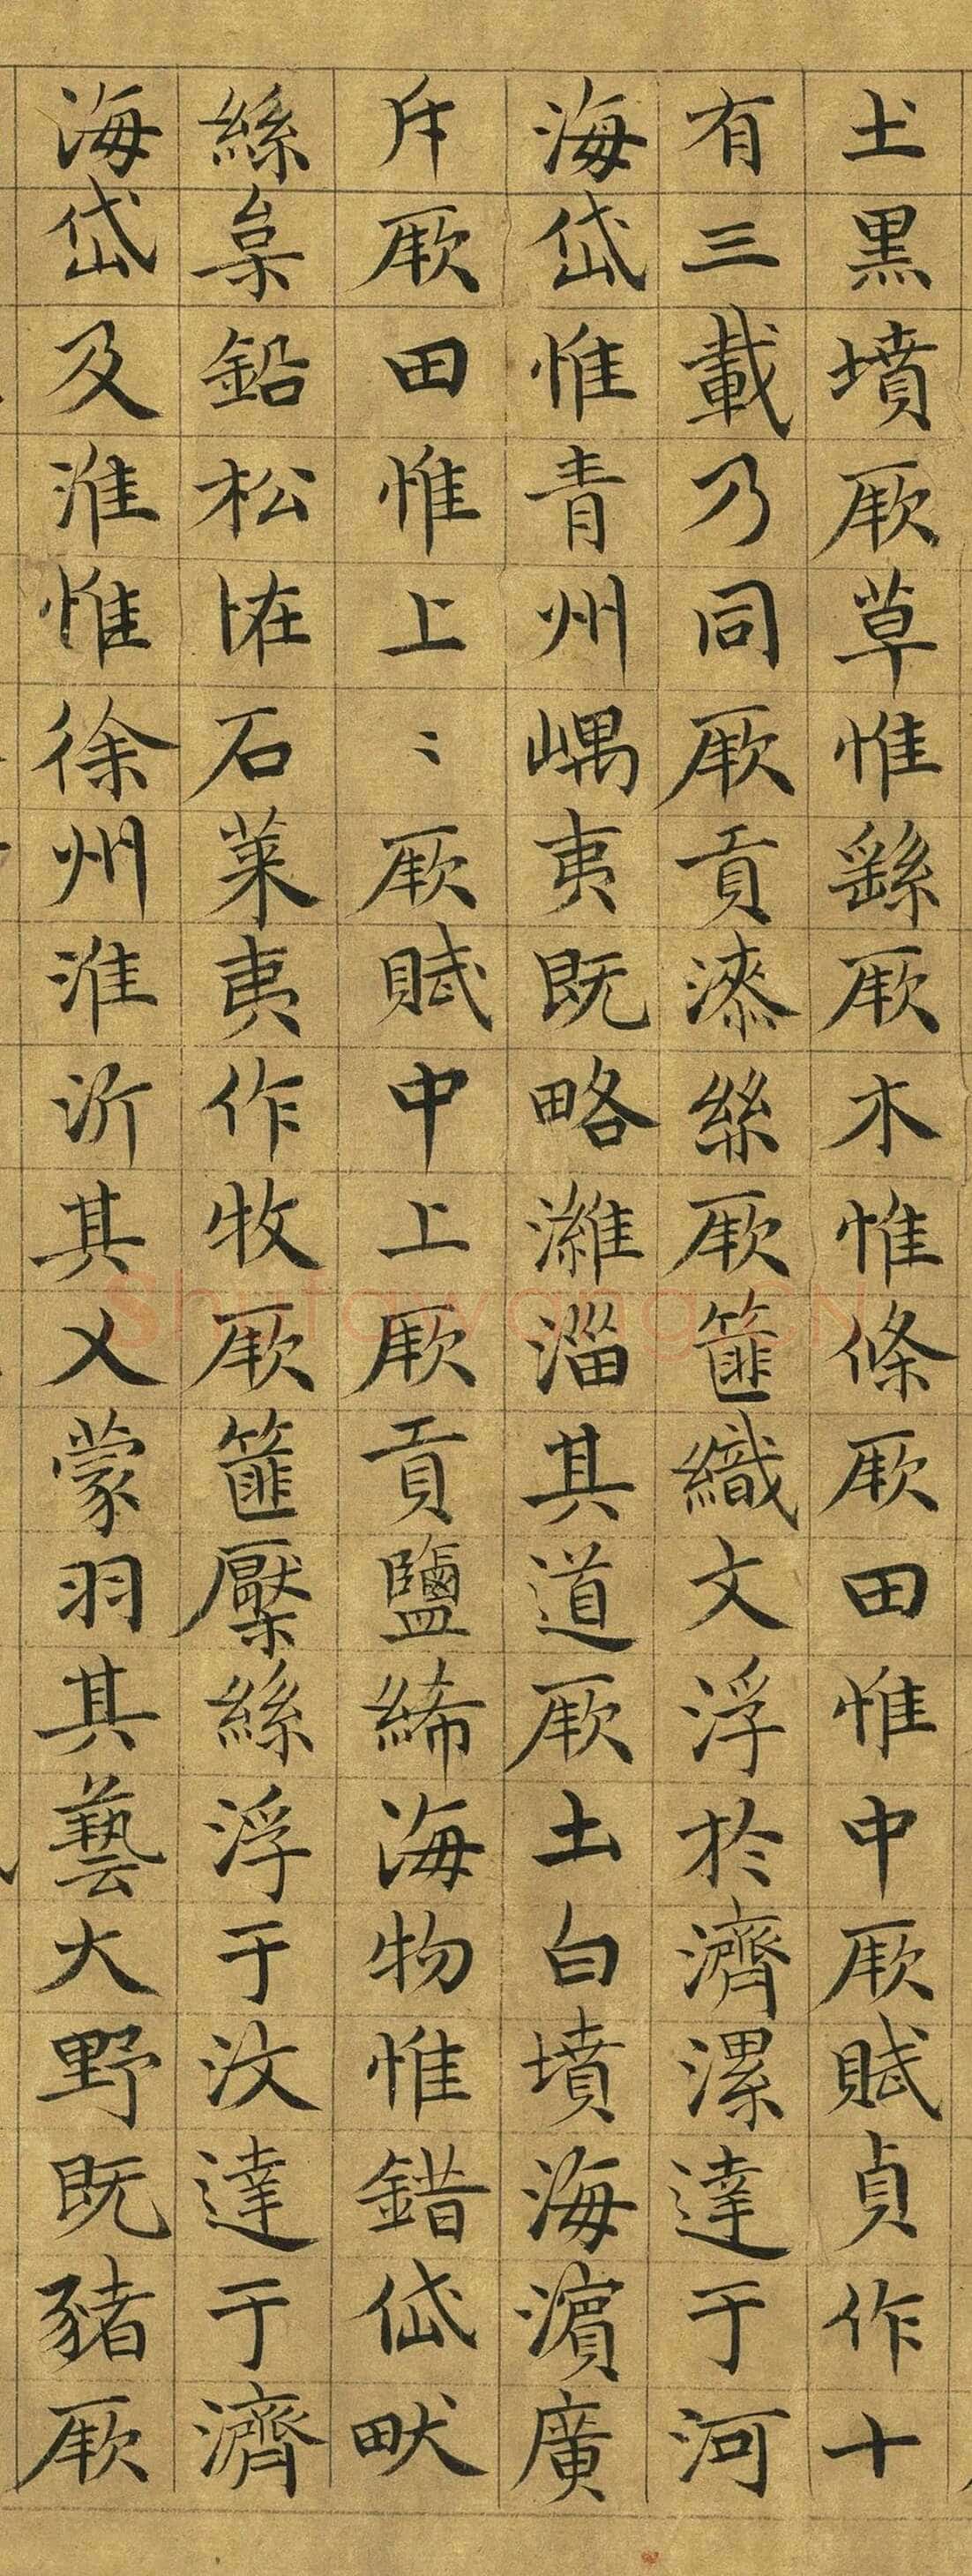 土黒墳厥草惟繇厥木惟條厥田惟中厥賦貞作十
有三載乃同厥貢漆絲厥篚織文浮於濟漯達于河
海岱惟青州嵎夷既略濰淄其道厥土白墳海濵廣
斥厥田惟上〻厥賦中上厥貢鹽絺海物惟錯岱畎
絲枲鉛松恠石萊夷作牧厥篚檿絲浮于汶達于濟
海岱及淮惟徐州淮沂其乂蒙羽其藝大野既豬厥
Shufawang.CN